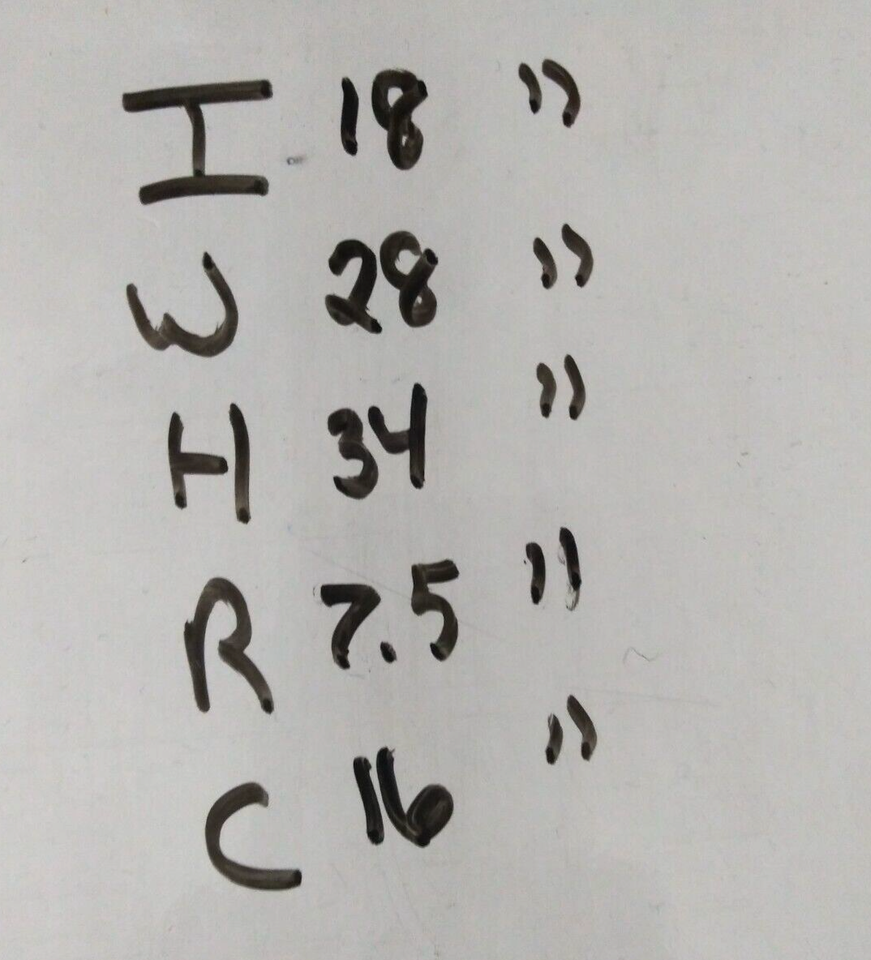 I 18 "
W 28 "
H 34 "
R 7.5 "
C 16 "